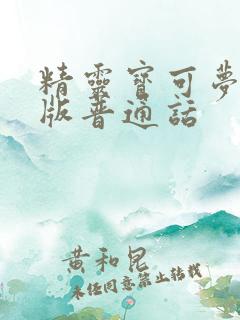 精靈寶可夢
版普通話
黄和昆
未经同意禁止转载